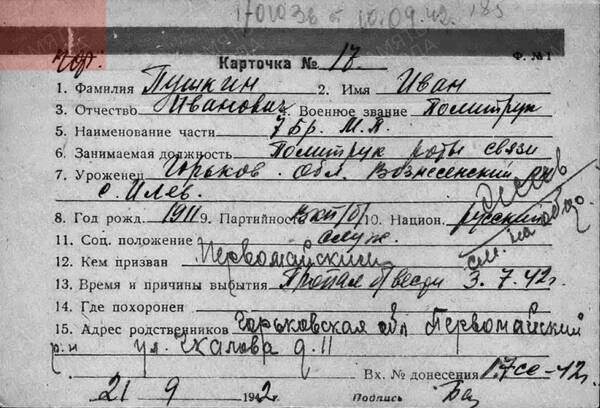 1701036 от 10.09.42. 185
Карточка № 17 Ф. № 1
1. Фамилия Пушкин 2. Имя Иван
3. Отчество Иванович 4. Военное звание Политрук
5. Наименование части 7 Бр. М.П.
6. Занимаемая должность Политрук роты связи
7. Уроженец Горьков. Обл. Вознесенский
с. Илев.
8. Год рожд. 1911 9. Партийность ВКП(б) 10. Национ. русский
11. Соц. положение служ. см. на обор.
12. Кем призван Первомайский
13. Время и причины выбытия Пропал б/вести 3.7.42г.
14. Где похоронен
15. Адрес родственников Горьковская обл Первомайский
р-н ул. Чкалова д. 11
Вх. № донесения 17се-42г.
21 / 9 1942 г. Подпись